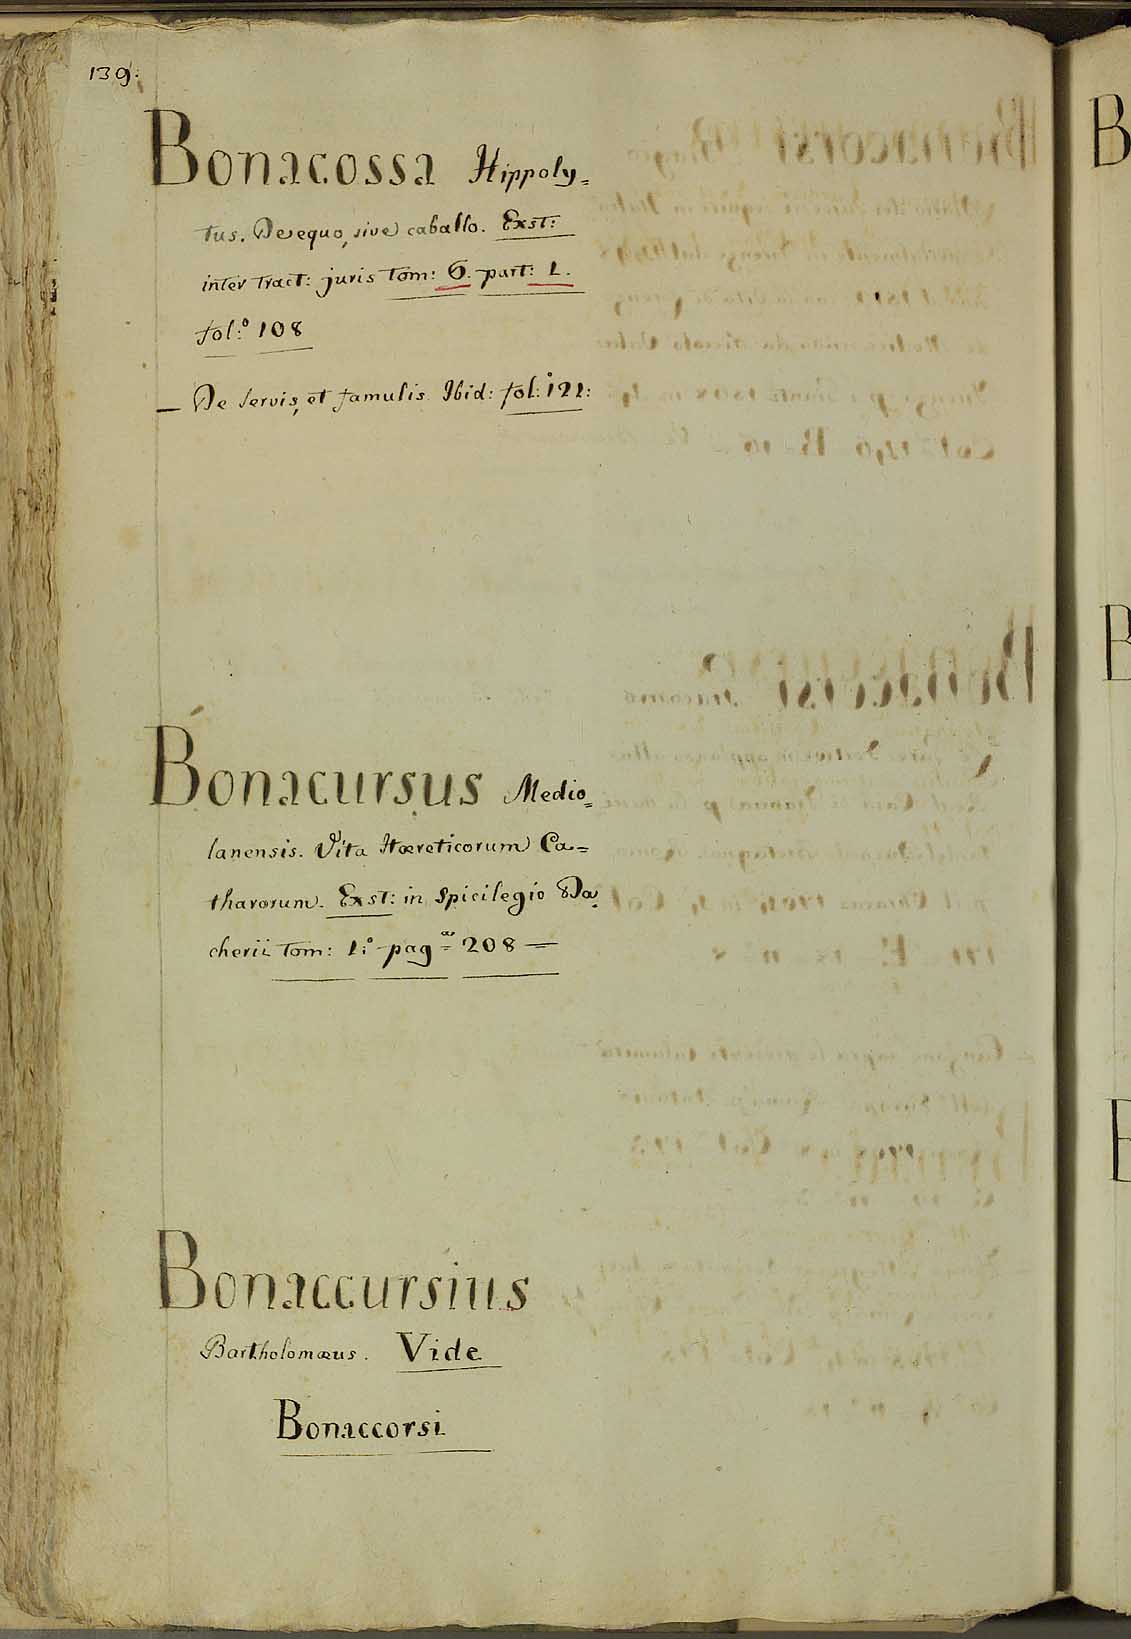 139:
Bonacossa Hippoly=
tus. De equo, sive caballo. Exst:
inter tract: juris tom: 6. part: 1.
fol:º 108
— De servis, et famulis. Ibid: fol:º 121:
Bonacursus Medio=
lanensis. Vita Hæreticorum Ca=
tharorum. Exst: in Spicilegio Da=
cherii tom: 1:º pag:ª 208 —
Bonaccursius
Bartholomæus. Vide
Bonaccorsi
B
B
B